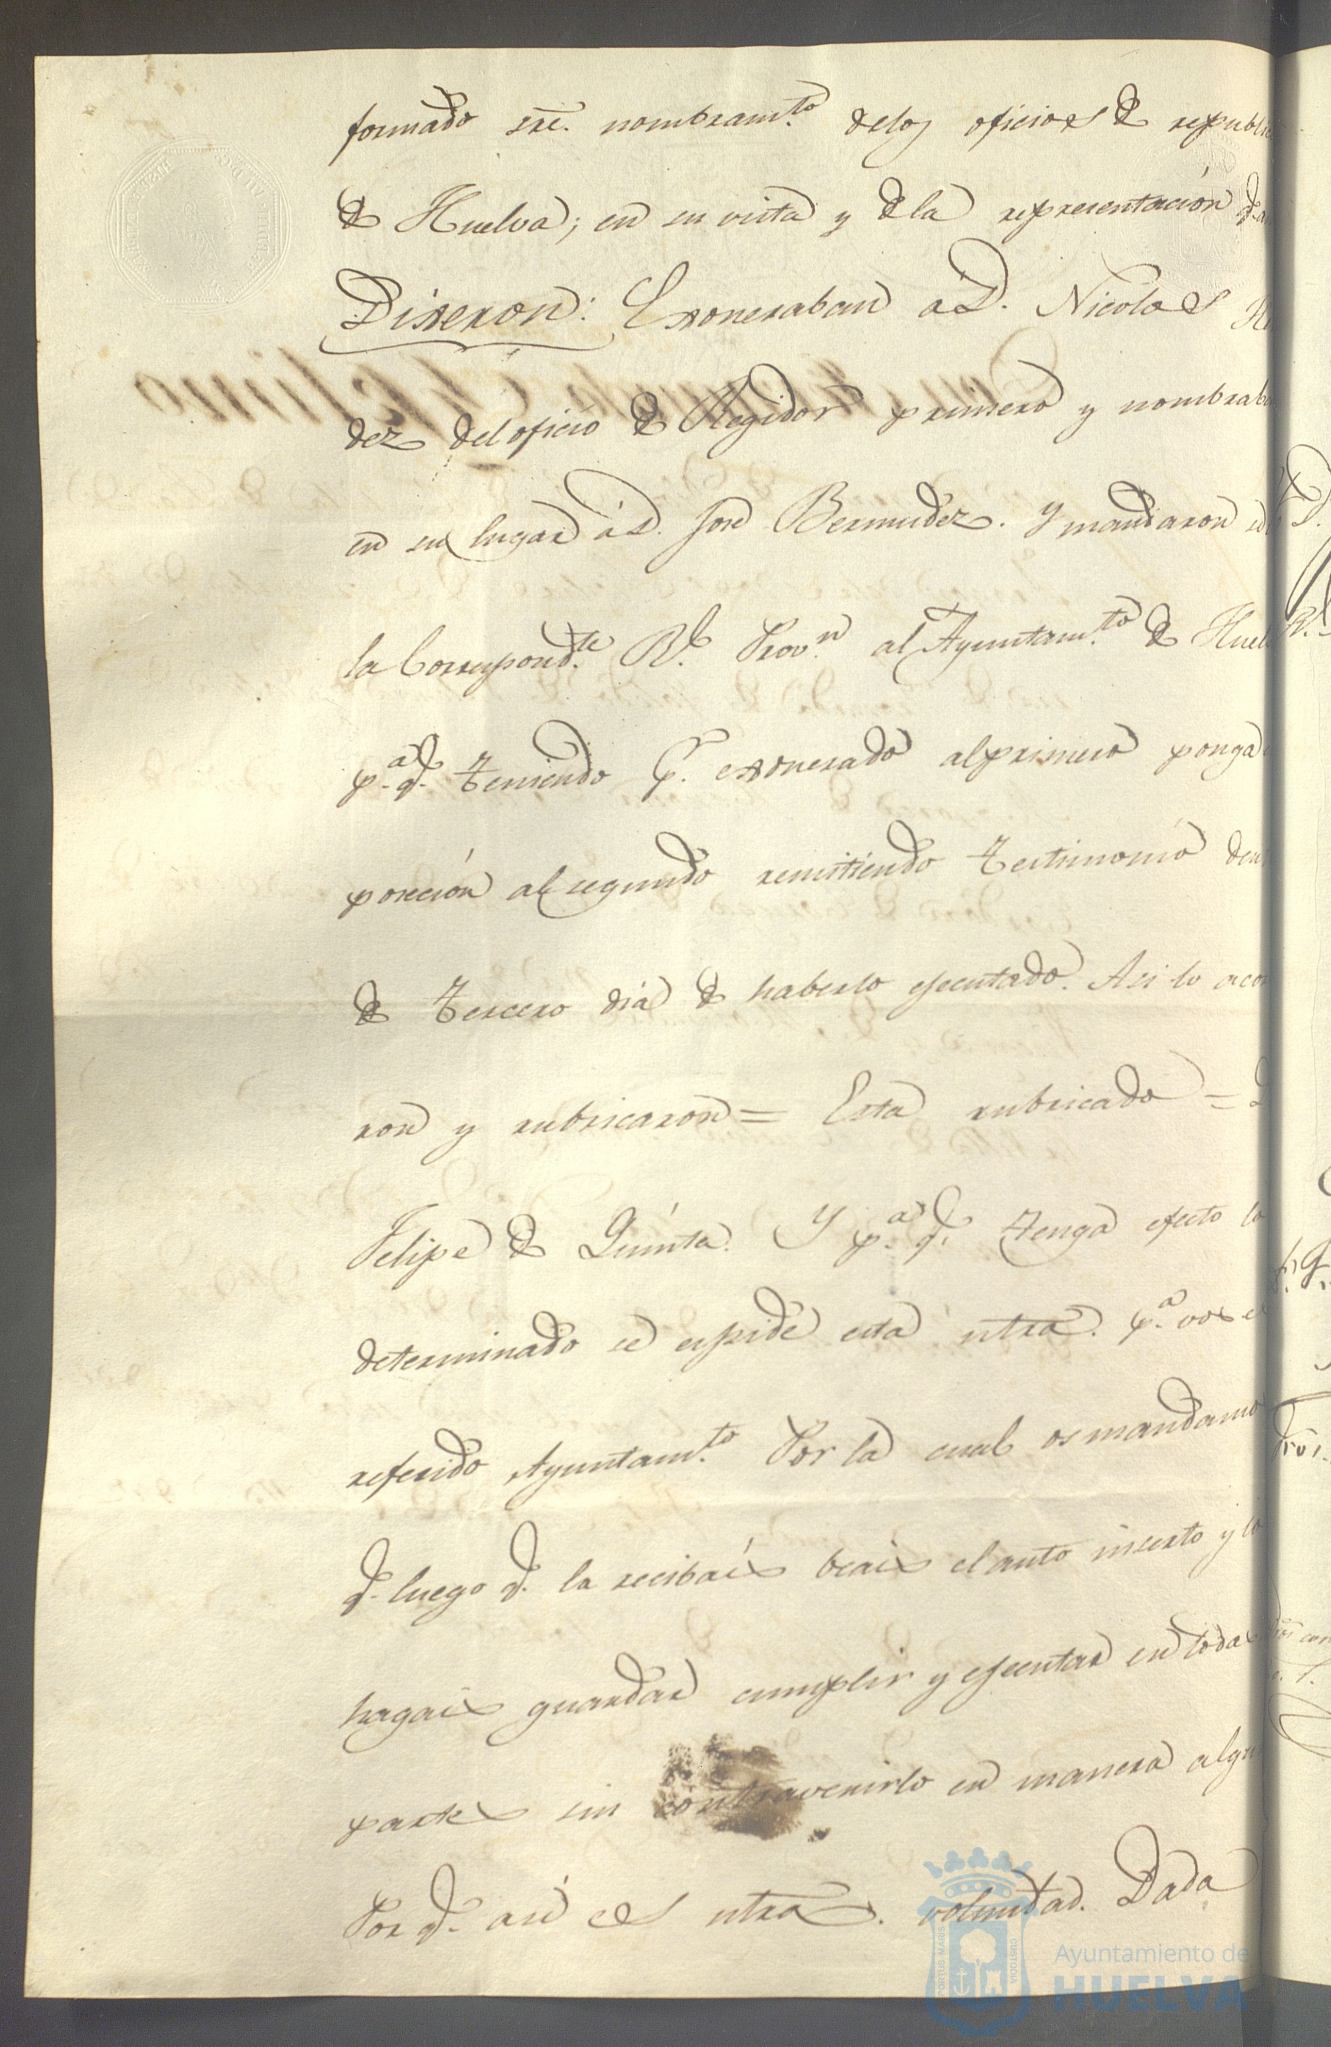 formado sre. nombramto. delos oficios de republi
de Huelva; en su vista y de la representación
Dixeron: Exoneraban á D. Nicolas
dez del oficio de Regidor primero y nombrab
en su lugar á D. José Bermudez. Y mandaron
la Correspondte. Rl. Provn. al Ayuntamto. de Huel
pa. q. teniendo pr. exonerado al primero ponga
poseción al segundo remitiendo testimonio
de tercero dia de haberlo ejecutado. Asi lo acor
ron y rubricaron = Esta rubricado =
Felipe de Quinta. Y pa. q. tenga efecto lo
determinado se espide esta ntra. pa. vos el
referido Ayuntamto. Por la cual os mandamo
q. luego q. la recibais beais el auto inserto y lo
hagais guardar cumplir y ejecutar en todas
partes sin contravenirlo en manera algu
Por q. asi es ntra. voluntad. Dada
PORTUS MARIS
CUSTODIA
Ayuntamiento de
HUELVA